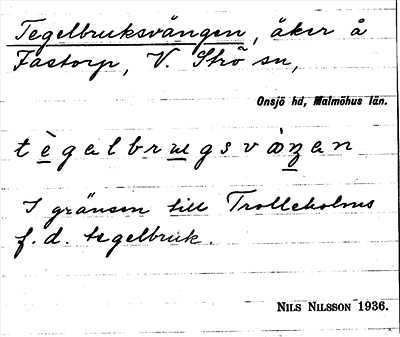 Tegelbruksvängen, åker å
Fastorp, V. Strö sn,
Onsjö hd, Malmöhus län.
tègalbrugsvàŋan
I gränsen till Trolleholms
f. d. tegelbruk.
NILS NILSSON 1936.